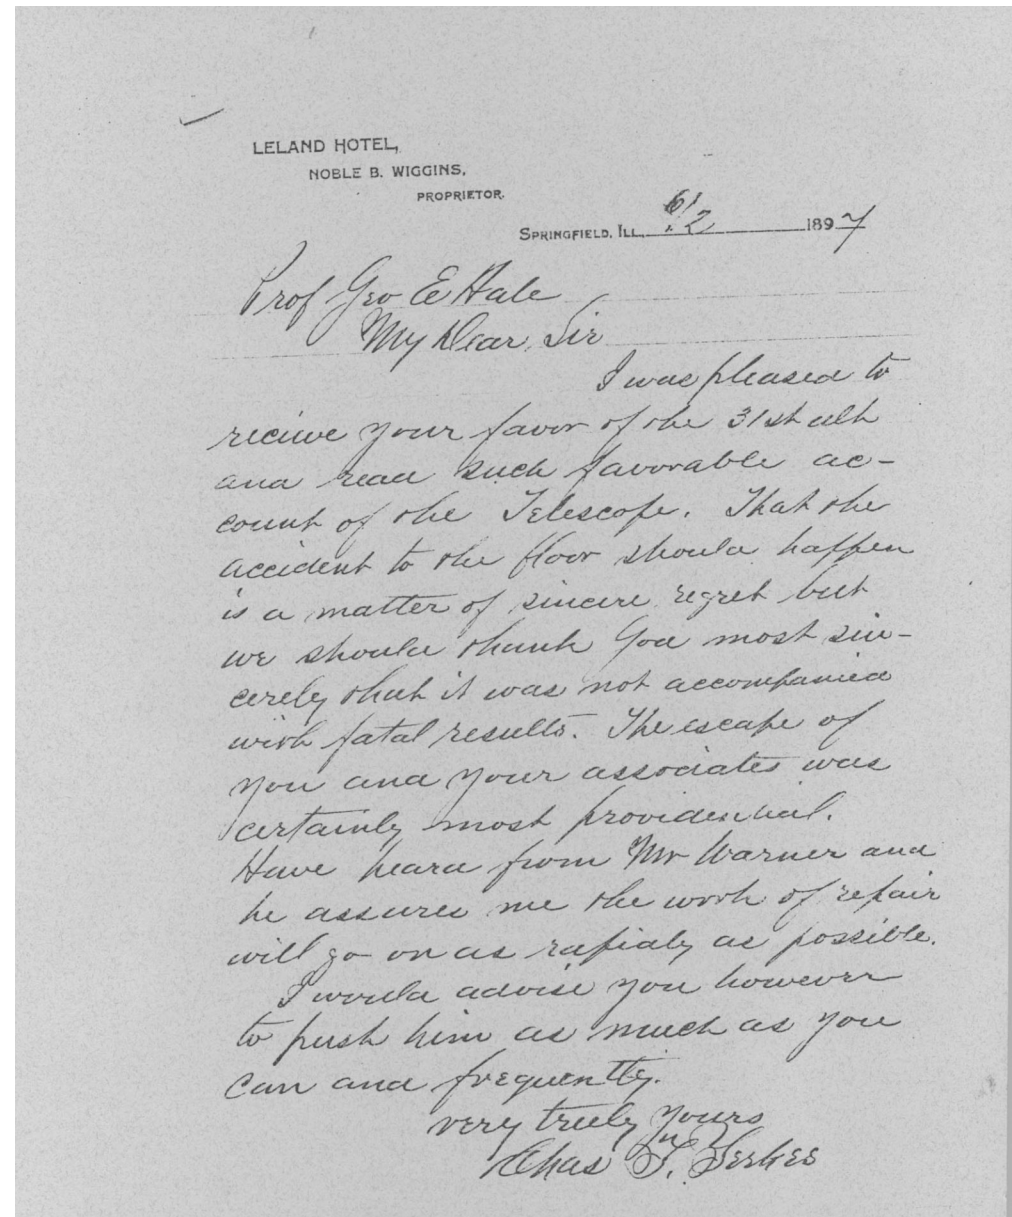 LELAND HOTEL,
NOBLE B. WIGGINS,
PROPRIETOR.
SPRINGFIELD, ILL., 6/2 1897
Prof Geo E Hale
My Dear Sir
I was pleased to
recieve your favor of the 31st ult
and read such favorable ac-
count of the Telescope. That the
accident to the floor should happen
is a matter of sincere regret but
we should thank God most sin-
cerely that it was not accompanied
with fatal results. The escape of
you and your associates was
certainly most providencial.
Have heard from Mr Warner and
he assures me the work of repair
will go on as rapidly as possible.
I would advise you however
to push him as much as you
can and frequently.
very truly yours
Chas T. Yerkes